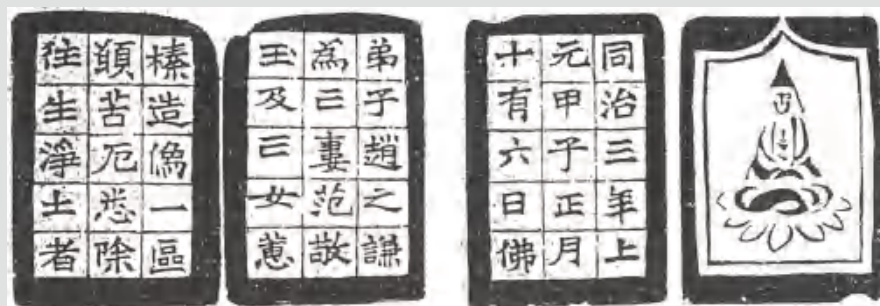 同治三年上
元甲子正月
十有六日佛
弟子趙之謙
爲亡妻范敬
玉及亡女蕙
榛造像一區
願苦厄悉除
往生淨土者